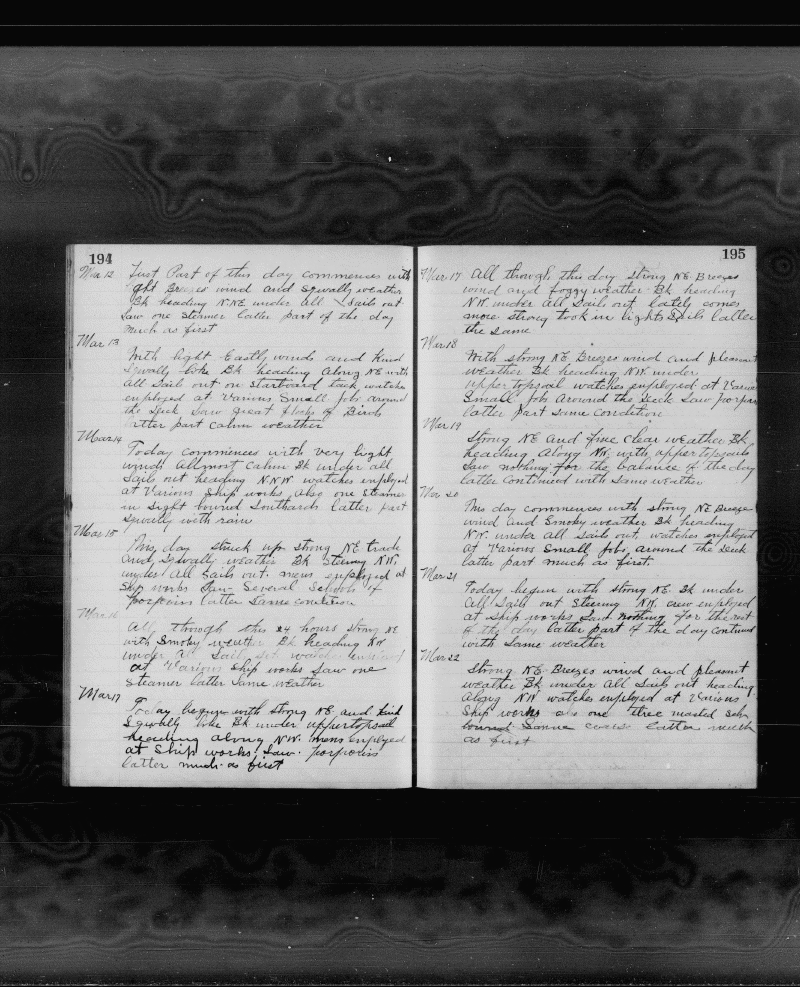 194
Mar 12 First Part of this day commences with
ght Breezes wind and Squally weather
Bk heading N.NE under All Sails out
Saw one Steamer latter part of the day
much as first
Mar 13
With light Eastly winds and kind
Squally like Bk heading Along NE with
All Sails out on Starboard tack watches
employed at Various Small Jobs around
the Deck Saw great flocks of Birds
latter part calm weather
Mar 14
Today commences with very light
winds Allmost calm Bk under all
Sails out heading N.N.W watches employed
at Various Ship works also one Steamer
in Sight bound Southards latter part
Squally with rain
Mar 15
This day struck up strong NE trade
and Squally weather Bk Steering N.W.
under All Sails out. mens employed at
Ship works Saw Several Schools of
porpoises latter Same condition
Mar 16
All through this 24 hours strong NE
with Smoky weather Bk heading NW
under All Sails set watches employed
at Various Ship works Saw one
Steamer latter Same weather
Mar 17
Today begun with strong NE and kind
Squally like Bk under uppertopsail
heading along N.W. mens employed
at Ship works. Saw porpoises
latter much as first
195
Mar 17 All through this day strong N.E. Breezes
wind and foggy weather Bk heading
N.W. under All Sails out lately comes
more strong took in lights Sails latter
the Same
Mar 18
With strong NE Breezes wind and pleasant
weather Bk heading N.W. under
uppertopsail watches employed at Various
Small Jobs Around the Deck Saw porpoises
latter part same condition
Mar 19
Strong NE and fine clear weather Bk
heading Along NW. with uppertopsails
Saw nothing for the balance of the day
latter continued with same weather
Mar 20
This day commences with strong NE Breeze
wind and Smoky weather Bk heading
N.W. under all Sails out, watches employed
At Various Small Jobs around the Deck
latter part much as first.
Mar 21
Today begun with strong NE. Bk under
All Sails out Steering N.W. crew employed
at ship works Said nothing for the rest
of the day latter part of the day Continued
with Same weather
Mar 22
Strong NE. Breezes wind and pleasant
weather Bk under All Sails out heading
Along NW watches employed at Various
Ship works also one three masted Sch
bound Same course latter much
as first